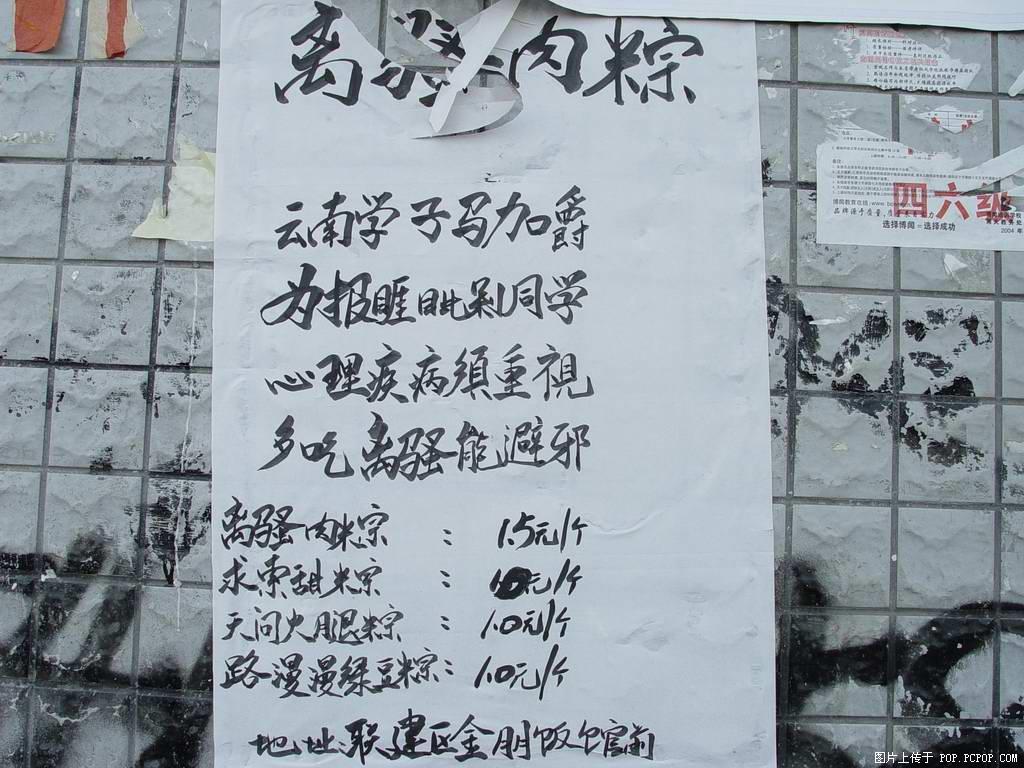 离骚肉粽
云南学子马加爵
为报睚眦剁同学
心理疾病须重視
多吃离骚能避邪
离骚肉粽 : 1.5元/个
求索甜粽 : 1.0元/个
天问火腿粽 : 1.0元/个
路漫漫绿豆粽: 1.0元/个
地址:联建区金朋饭馆前
四六级
品牌源于质量,
选择博闻=选择成功
2004 年
图片上传于 POP.PCPOP.COM